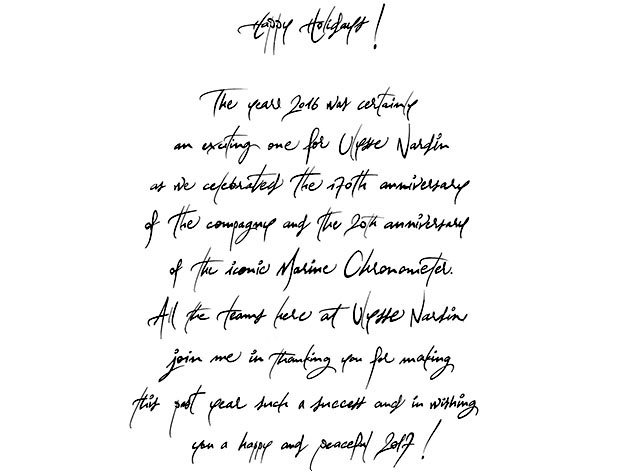 Happy Holidays!
The year 2016 was certainly
an exciting one for Ulysse Nardin
as we celebrated the 170th anniversary
of the compagny and the 20th anniversary
of the iconic Marine Chronometer.
All the teams here at Ulysse Nardin
join me in thanking you for making
this past year such a success and in wishing
you a happy and peaceful 2017!